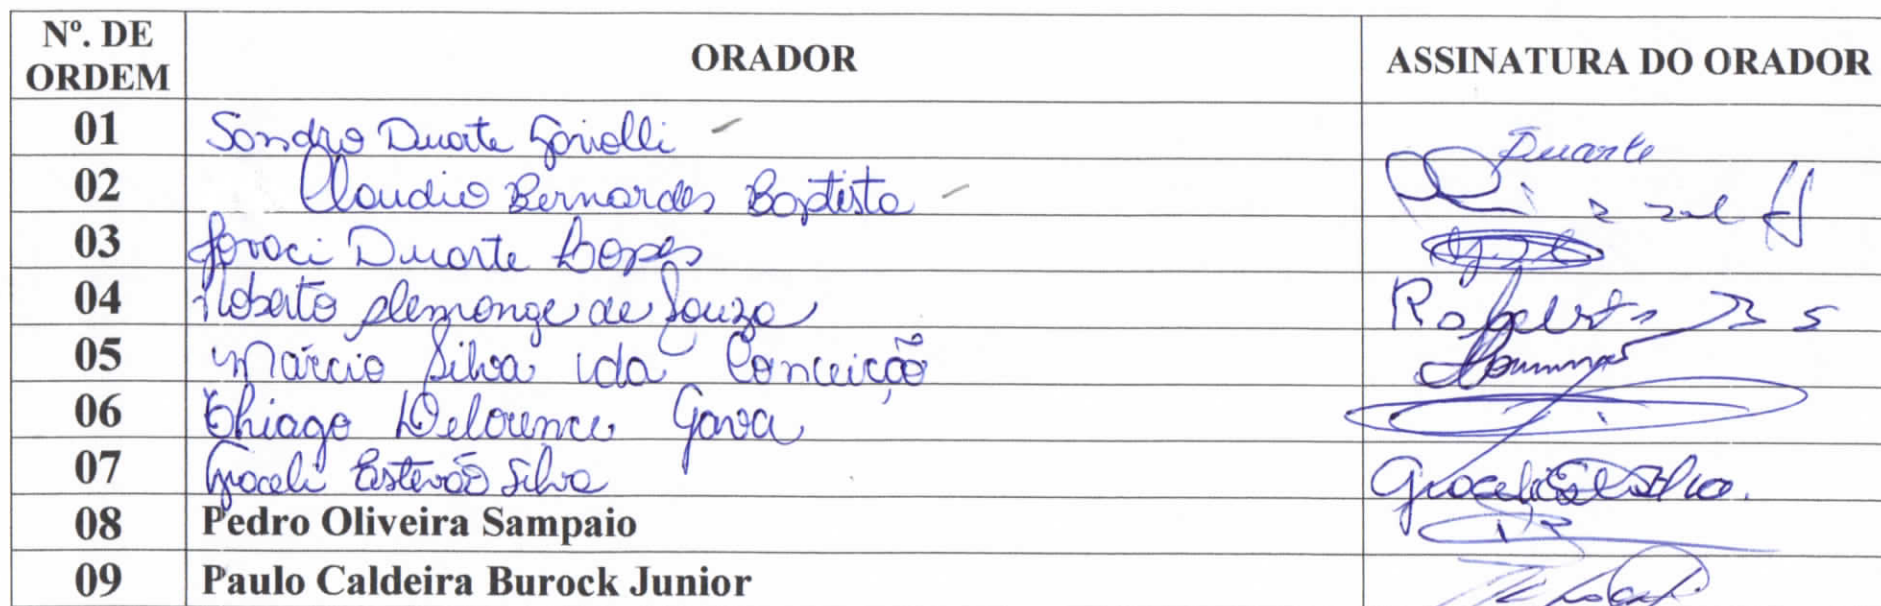 Nº. DE ORDEM ORADOR ASSINATURA DO ORADOR
01 Sandro Duarte Duarte
02 Claudio Bernardes Baptista
03 Duarte Lopes
04 Roberto Alemonge de Souza Roberto
05 Márcio Silva da Conceição
06 Thiago Delourence Gava
07 Graceli Estevão Silva Graceli
08 Pedro Oliveira Sampaio
09 Paulo Caldeira Burock Junior